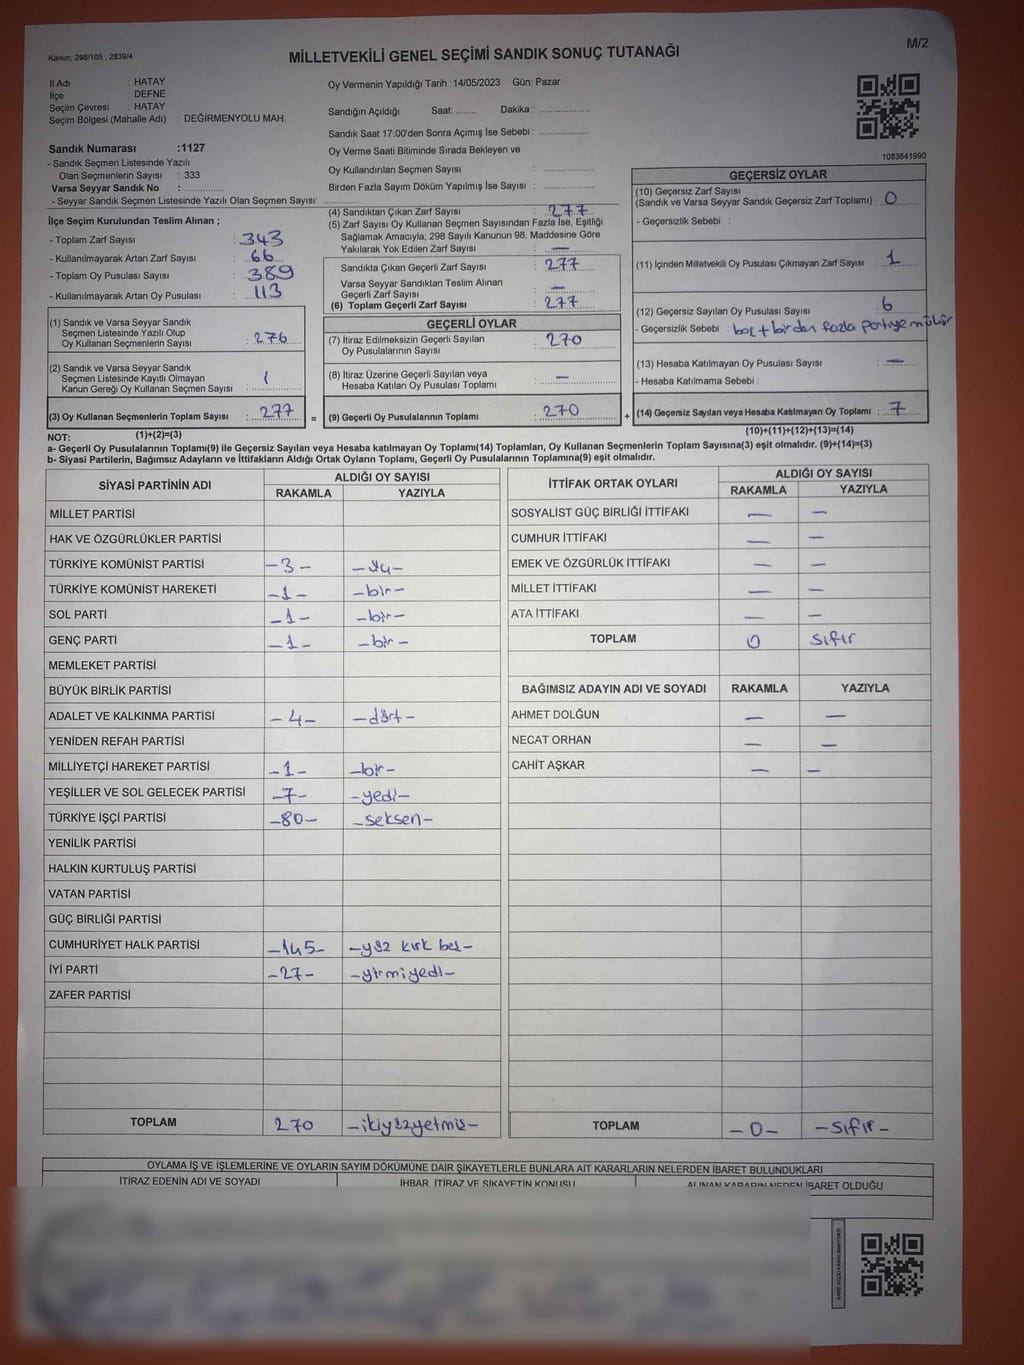 Kanun; 298/105 , 2839/4
MİLLETVEKİLİ GENEL SEÇİMİ SANDIK SONUÇ TUTANAĞI
M/2
İl Adı : HATAY
İlçe : DEFNE
Seçim Çevresi : HATAY
Seçim Bölgesi (Mahalle Adı) : DEĞİRMENYOLU MAH.
Sandık Numarası :1127
- Sandık Seçmen Listesinde Yazılı
Olan Seçmenlerin Sayısı : 333
Varsa Seyyar Sandık No : ..............
- Seyyar Sandık Seçmen Listesinde Yazılı Olan Seçmen Sayısı: ..............
Oy Vermenin Yapıldığı Tarih : 14/05/2023 Gün: Pazar
Sandığın Açıldığı Saat: ........ Dakika : ..............
Sandık Saat 17:00'den Sonra Açımış İse Sebebi : ..............
Oy Verme Saati Bitiminde Sırada Bekleyen ve
Oy Kullandırılan Seçmen Sayısı : ..............
Birden Fazla Sayım Döküm Yapılmış İse Sayısı : ..............
1083641990
İlçe Seçim Kurulundan Teslim Alınan ;
- Toplam Zarf Sayısı : 343
- Kullanılmayarak Artan Zarf Sayısı : 66
- Toplam Oy Pusulası Sayısı : 389
- Kullanılmayarak Artan Oy Pusulası : 113
(1) Sandık ve Varsa Seyyar Sandık
Seçmen Listesinde Yazılı Olup
Oy Kullanan Seçmenlerin Sayısı : 276
(2) Sandık ve Varsa Seyyar Sandık
Seçmen Listesinde Kayıtlı Olmayan
Kanun Gereği Oy Kullanan Seçmen Sayısı : 1
(3) Oy Kullanan Seçmenlerin Toplam Sayısı : 277 =
(1)+(2)=(3)
(4) Sandıktan Çıkan Zarf Sayısı : 277
(5) Zarf Sayısı Oy Kullanan Seçmen Sayısından Fazla İse, Eşitliği
Sağlamak Amacıyla; 298 Sayılı Kanunun 98. Maddesine Göre
Yakılarak Yok Edilen Zarf Sayısı : —
Sandıkta Çıkan Geçerli Zarf Sayısı : 277
Varsa Seyyar Sandıktan Teslim Alınan
Geçerli Zarf Sayısı : —
(6) Toplam Geçerli Zarf Sayısı : 277
GEÇERLİ OYLAR
(7) İtiraz Edilmeksizin Geçerli Sayılan
Oy Pusulalarının Sayısı : 270
(8) İtiraz Üzerine Geçerli Sayılan veya
Hesaba Katılan Oy Pusulası Toplamı : —
(9) Geçerli Oy Pusulalarının Toplamı : 270 +
GEÇERSİZ OYLAR
(10) Geçersiz Zarf Sayısı
(Sandık ve Varsa Seyyar Sandık Geçersiz Zarf Toplamı) : 0
- Geçersizlik Sebebi :
(11) İçinden Milletvekili Oy Pusulası Çıkmayan Zarf Sayısı : 1
(12) Geçersiz Sayılan Oy Pusulası Sayısı : 6
- Geçersizlik Sebebi : boş + birden fazla partiye mühür
(13) Hesaba Katılmayan Oy Pusulası Sayısı : —
- Hesaba Katılmama Sebebi :
(14) Geçersiz Sayılan veya Hesaba Katılmayan Oy Toplamı : 7
(10)+(11)+(12)+(13)=(14)
NOT:
a- Geçerli Oy Pusulalarının Toplamı(9) ile Geçersiz Sayılan veya Hesaba katılmayan Oy Toplamı(14) Toplamları, Oy Kullanan Seçmenlerin Toplam Sayısına(3) eşit olmalıdır. (9)+(14)=(3)
b- Siyasi Partilerin, Bağımsız Adayların ve İttifakların Aldığı Ortak Oyların Toplamı, Geçerli Oy Pusulalarının Toplamına(9) eşit olmalıdır.
SİYASİ PARTİNİN ADI ALDIĞI OY SAYISI
RAKAMLA YAZIYLA
MİLLET PARTİSİ
HAK VE ÖZGÜRLÜKLER PARTİSİ
TÜRKİYE KOMÜNİST PARTİSİ -3- -üç-
TÜRKİYE KOMÜNİST HAREKETİ -1- -bir-
SOL PARTİ -1- -bir-
GENÇ PARTİ -1- -bir-
MEMLEKET PARTİSİ
BÜYÜK BİRLİK PARTİSİ
ADALET VE KALKINMA PARTİSİ -4- -dört-
YENİDEN REFAH PARTİSİ
MİLLİYETÇİ HAREKET PARTİSİ -1- -bir-
YEŞİLLER VE SOL GELECEK PARTİSİ -7- -yedi-
TÜRKİYE İŞÇİ PARTİSİ -80- -seksen-
YENİLİK PARTİSİ
HALKIN KURTULUŞ PARTİSİ
VATAN PARTİSİ
GÜÇ BİRLİĞİ PARTİSİ
CUMHURİYET HALK PARTİSİ -145- -yüz kırk beş-
İYİ PARTİ -27- -yirmiyedi-
ZAFER PARTİSİ
TOPLAM 270 -ikiyüzyetmiş-
İTTİFAK ORTAK OYLARI ALDIĞI OY SAYISI
RAKAMLA YAZIYLA
SOSYALİST GÜÇ BİRLİĞİ İTTİFAKI — —
CUMHUR İTTİFAKI — —
EMEK VE ÖZGÜRLÜK İTTİFAKI — —
MİLLET İTTİFAKI — —
ATA İTTİFAKI — —
TOPLAM 0 sıfır
BAĞIMSIZ ADAYIN ADI VE SOYADI RAKAMLA YAZIYLA
AHMET DOLĞUN — —
NECAT ORHAN — —
CAHİT AŞKAR — —
TOPLAM -0- -sıfır-
OYLAMA İŞ VE İŞLEMLERİNE VE OYLARIN SAYIM DÖKÜMÜNE DAİR ŞİKAYETLERLE BUNLARA AİT KARARLARIN NELERDEN İBARET BULUNDUKLARI
İTİRAZ EDENİN ADI VE SOYADI İHBAR, İTİRAZ VE ŞİKAYETİN KONUSU ALINAN KARARIN NEDEN İBARET OLDUĞU